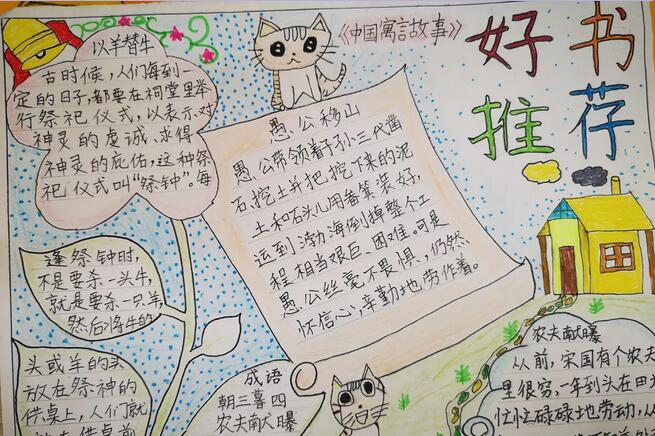 《中国寓言故事》
好书
推荐
以羊替牛
古时候，人们每到一
定的日子，都要在祠堂里举
行祭祀仪式，以表示对
神灵的虔诚、求得
神灵的庇佑，这种祭
祀仪式叫“祭钟”。每
逢祭钟时，
不是要杀一头牛，
就是要杀一只羊，
然后将牛的
头或羊的头
放在祭神的
供桌上，人们就
愚公移山
愚公带领着子孙三代凿
石挖土并把挖下来的泥
土和石头儿用畚箕装好，
运到渤海倒掉整个工
程相当艰巨、困难。可是
愚公丝毫不畏惧，仍然
怀信心，辛勤地劳作着。
成语
朝三暮四
农夫献曝
农夫献曝
从前，宋国有个农夫
里很穷，一年到头在田
忙忙碌碌地劳动，从